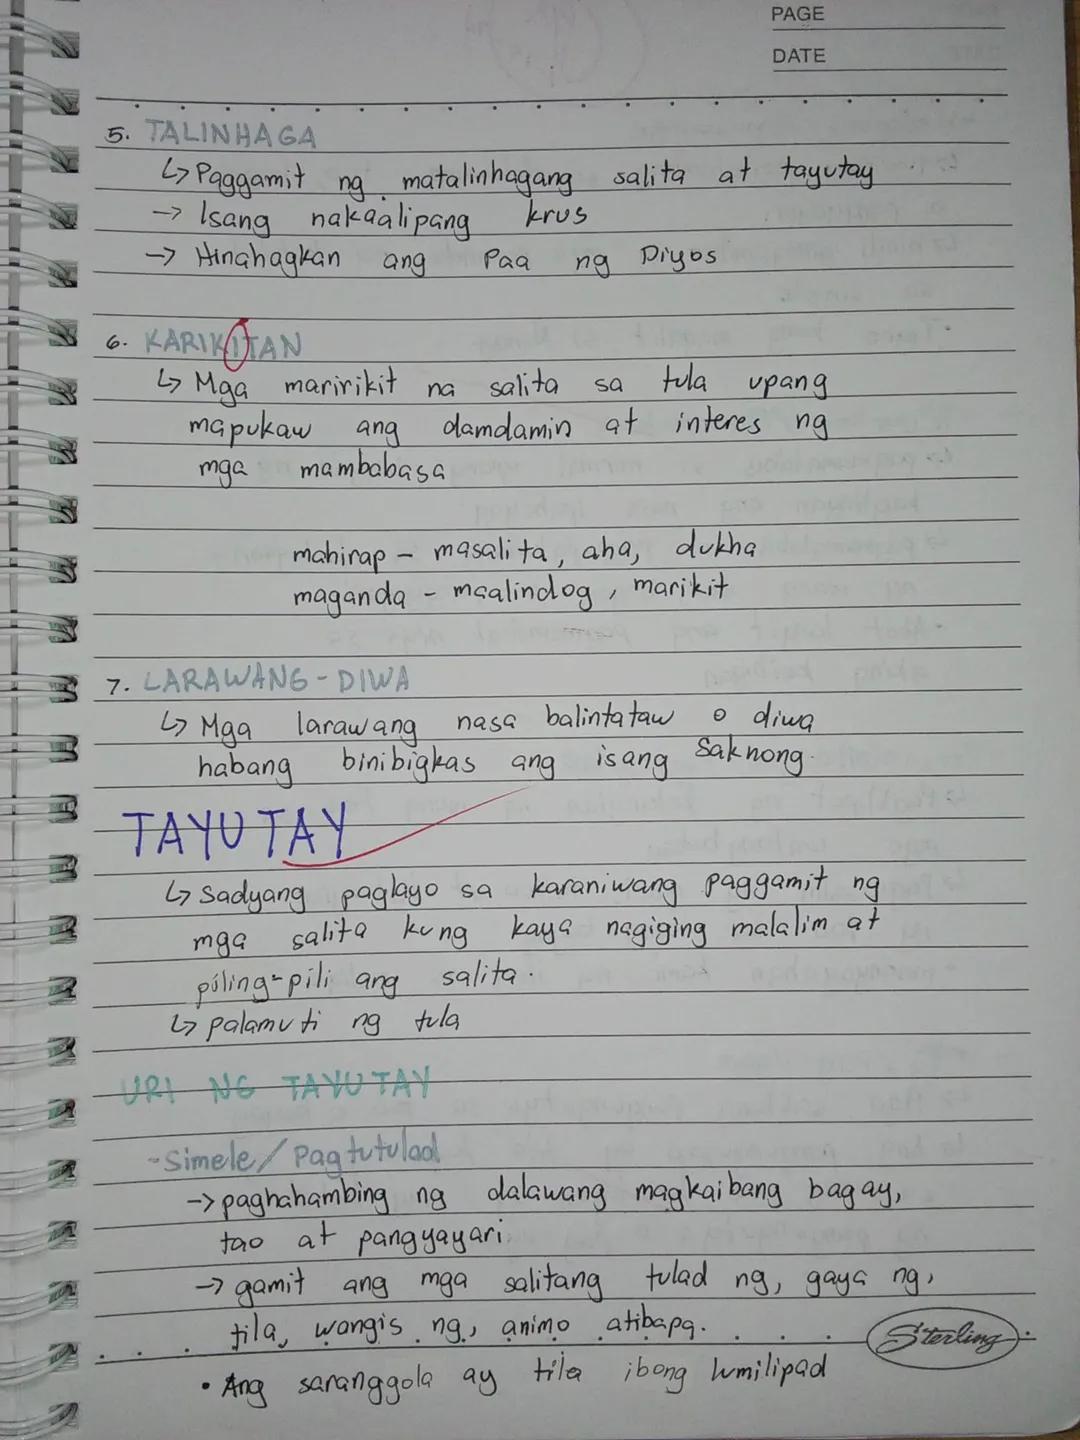 PAGE
DATE
5. TALINHAGA
↳ Paggamit ng matalinhagang salita at tayutay
→ Isang nakaalipang krus
→ Hinahagkan ang Paa ng Diyos
6. KARIKITAN
↳ Mga maririkit na salita sa tula upang
mapukaw ang damdamin at interes ng
mga mambabasa
mahirap - masalita, aha, dukha
maganda - maalindog, marikit
7. LARAWANG-DIWA
↳ Mga larawang nasa balintataw o diwa
habang binibigkas ang isang Saknong.
TAYUTAY
↳ Sadyang paglayo sa karaniwang paggamit ng
mga salita kung kaya nagiging malalim at
piling-pili ang salita.
↳ palamuti ng tula
URI NG TAYUTAY
-Simele/Pagtutulad
→ paghahambing ng dalawang magkaibang bagay,
tao at pangyayari
→ gamit ang mga salitang tulad ng, gaya ng,
tila, wangis ng, animo atibapa.
Sterling
• Ang saranggola ay tila ibong lumilipad